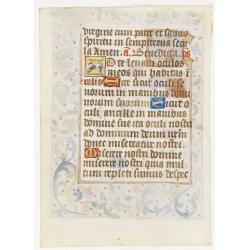 virgine cum patre et sancto
spiritu in sempiterna secu
la Amen. a. Benedicta. ps
Ad te levavi oculos
meos qui habitas i
celis Ecce sicut oculi se
rvorum in manibus domi
norum suorum Sicut o
culi ancille in manibus
domine sue ita oculi nostri
ad dominum deum nrm
donec misereatur nostri
Miserere nostri domine
miserere nostri quia mul
tum repleti sumus despec